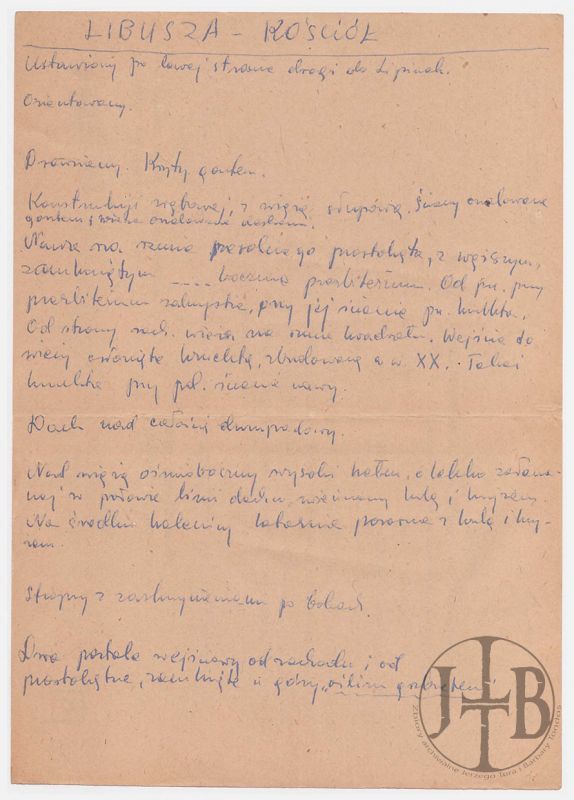 LIBUSZA – KOŚCIÓŁ
Ustawiony po lewej stronie drogi do Lipinek.
Orientowany.
Drewniany. Kryty gontem.
Konstrukcji zrębowej, z wieżą słupową. Ściany oszalowane
gontem, wieża oszalowana deskami.
Nawa na rzucie prostokąta, z węższym,
zamkniętym .... bocznie prezbiterium. Od pn. przy
prezbiterium zakrystia, przy jej ścianie pn. kruchta.
Od strony zach. wieża na rzucie kwadratu. Wejście do
wieży osłonięte kruchtą, zbudowaną w w. XX. Taka
kruchta przy pd. ścianie nawy.
Dach nad całością dwuspadowy.
Nad wieżą ośmioboczny wysoki hełm, o lekko załama-
nej w połowie linii dachu, zwieńczony kulą i krzyżem.
Na środku kalenicy latarnia pozorna z kulą i krzy-
żem.
Stropy z zaskrzynieniami po bokach.
Dwa portale wejściowy od zachodu i od
prostokątne, zamknięte u góry „oślim grzbietem”
JTTB
Zbiory archiwalne Jerzego Tura i Barbary Tondos